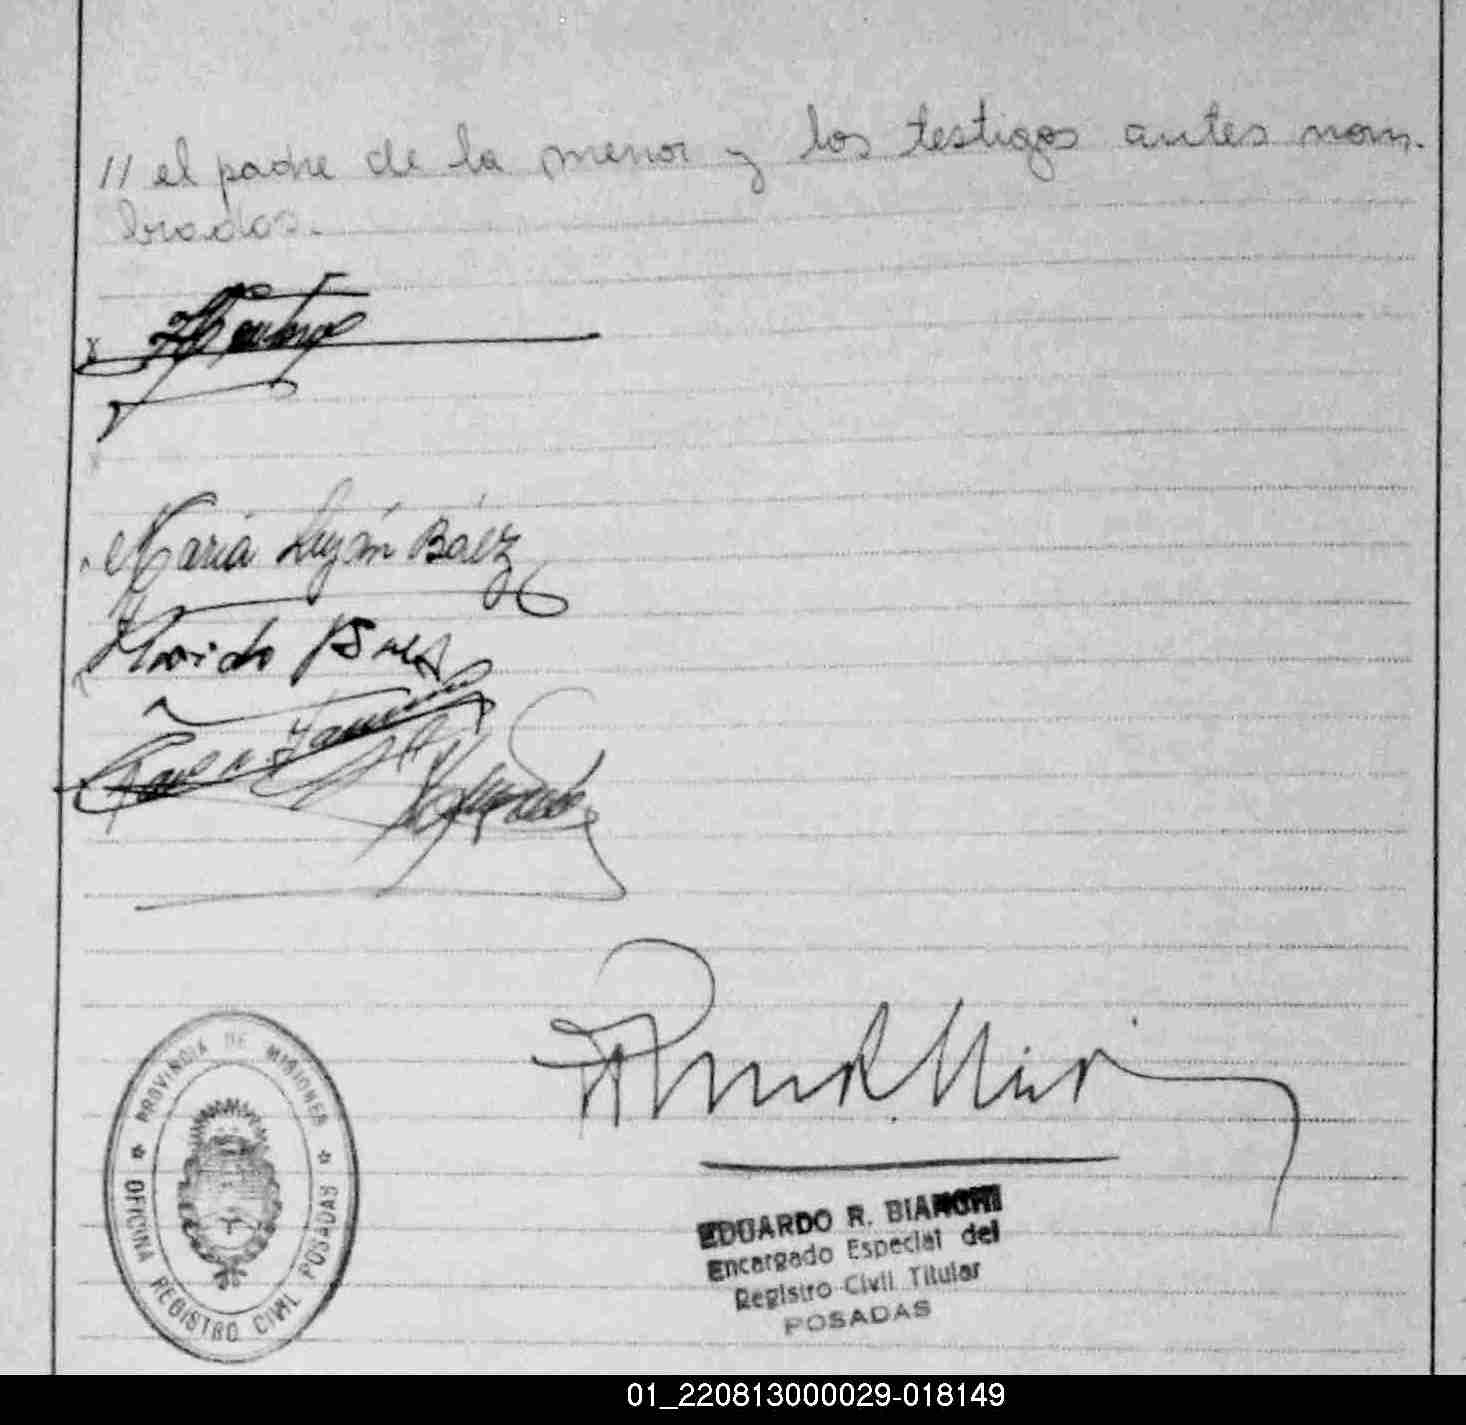 // el padre de la menor y los testigos antes nom-
brados.-
María Luján Báez
PROVINCIA DE MISIONES
OFICINA REGISTRO CIVIL POSADAS
EDUARDO R. BIANCHI
Encargado Especial del
Registro Civil Titular
POSADAS
01_220813000029-018149